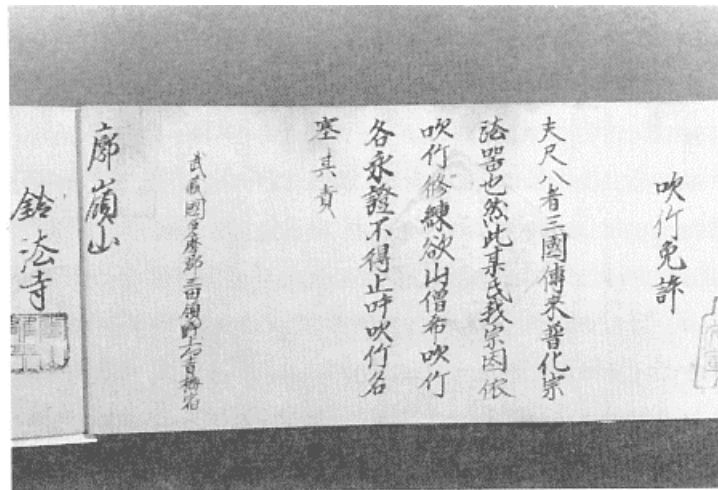 吹竹免許
夫尺八者三國傳来普化宗
法器也然此某氏我宗因依
吹竹修練欲山僧希吹竹
各永證不得止呼吹竹名
塞其責
武蔵國多摩郡三田領野上青梅宿
廓嶺山
鈴法寺